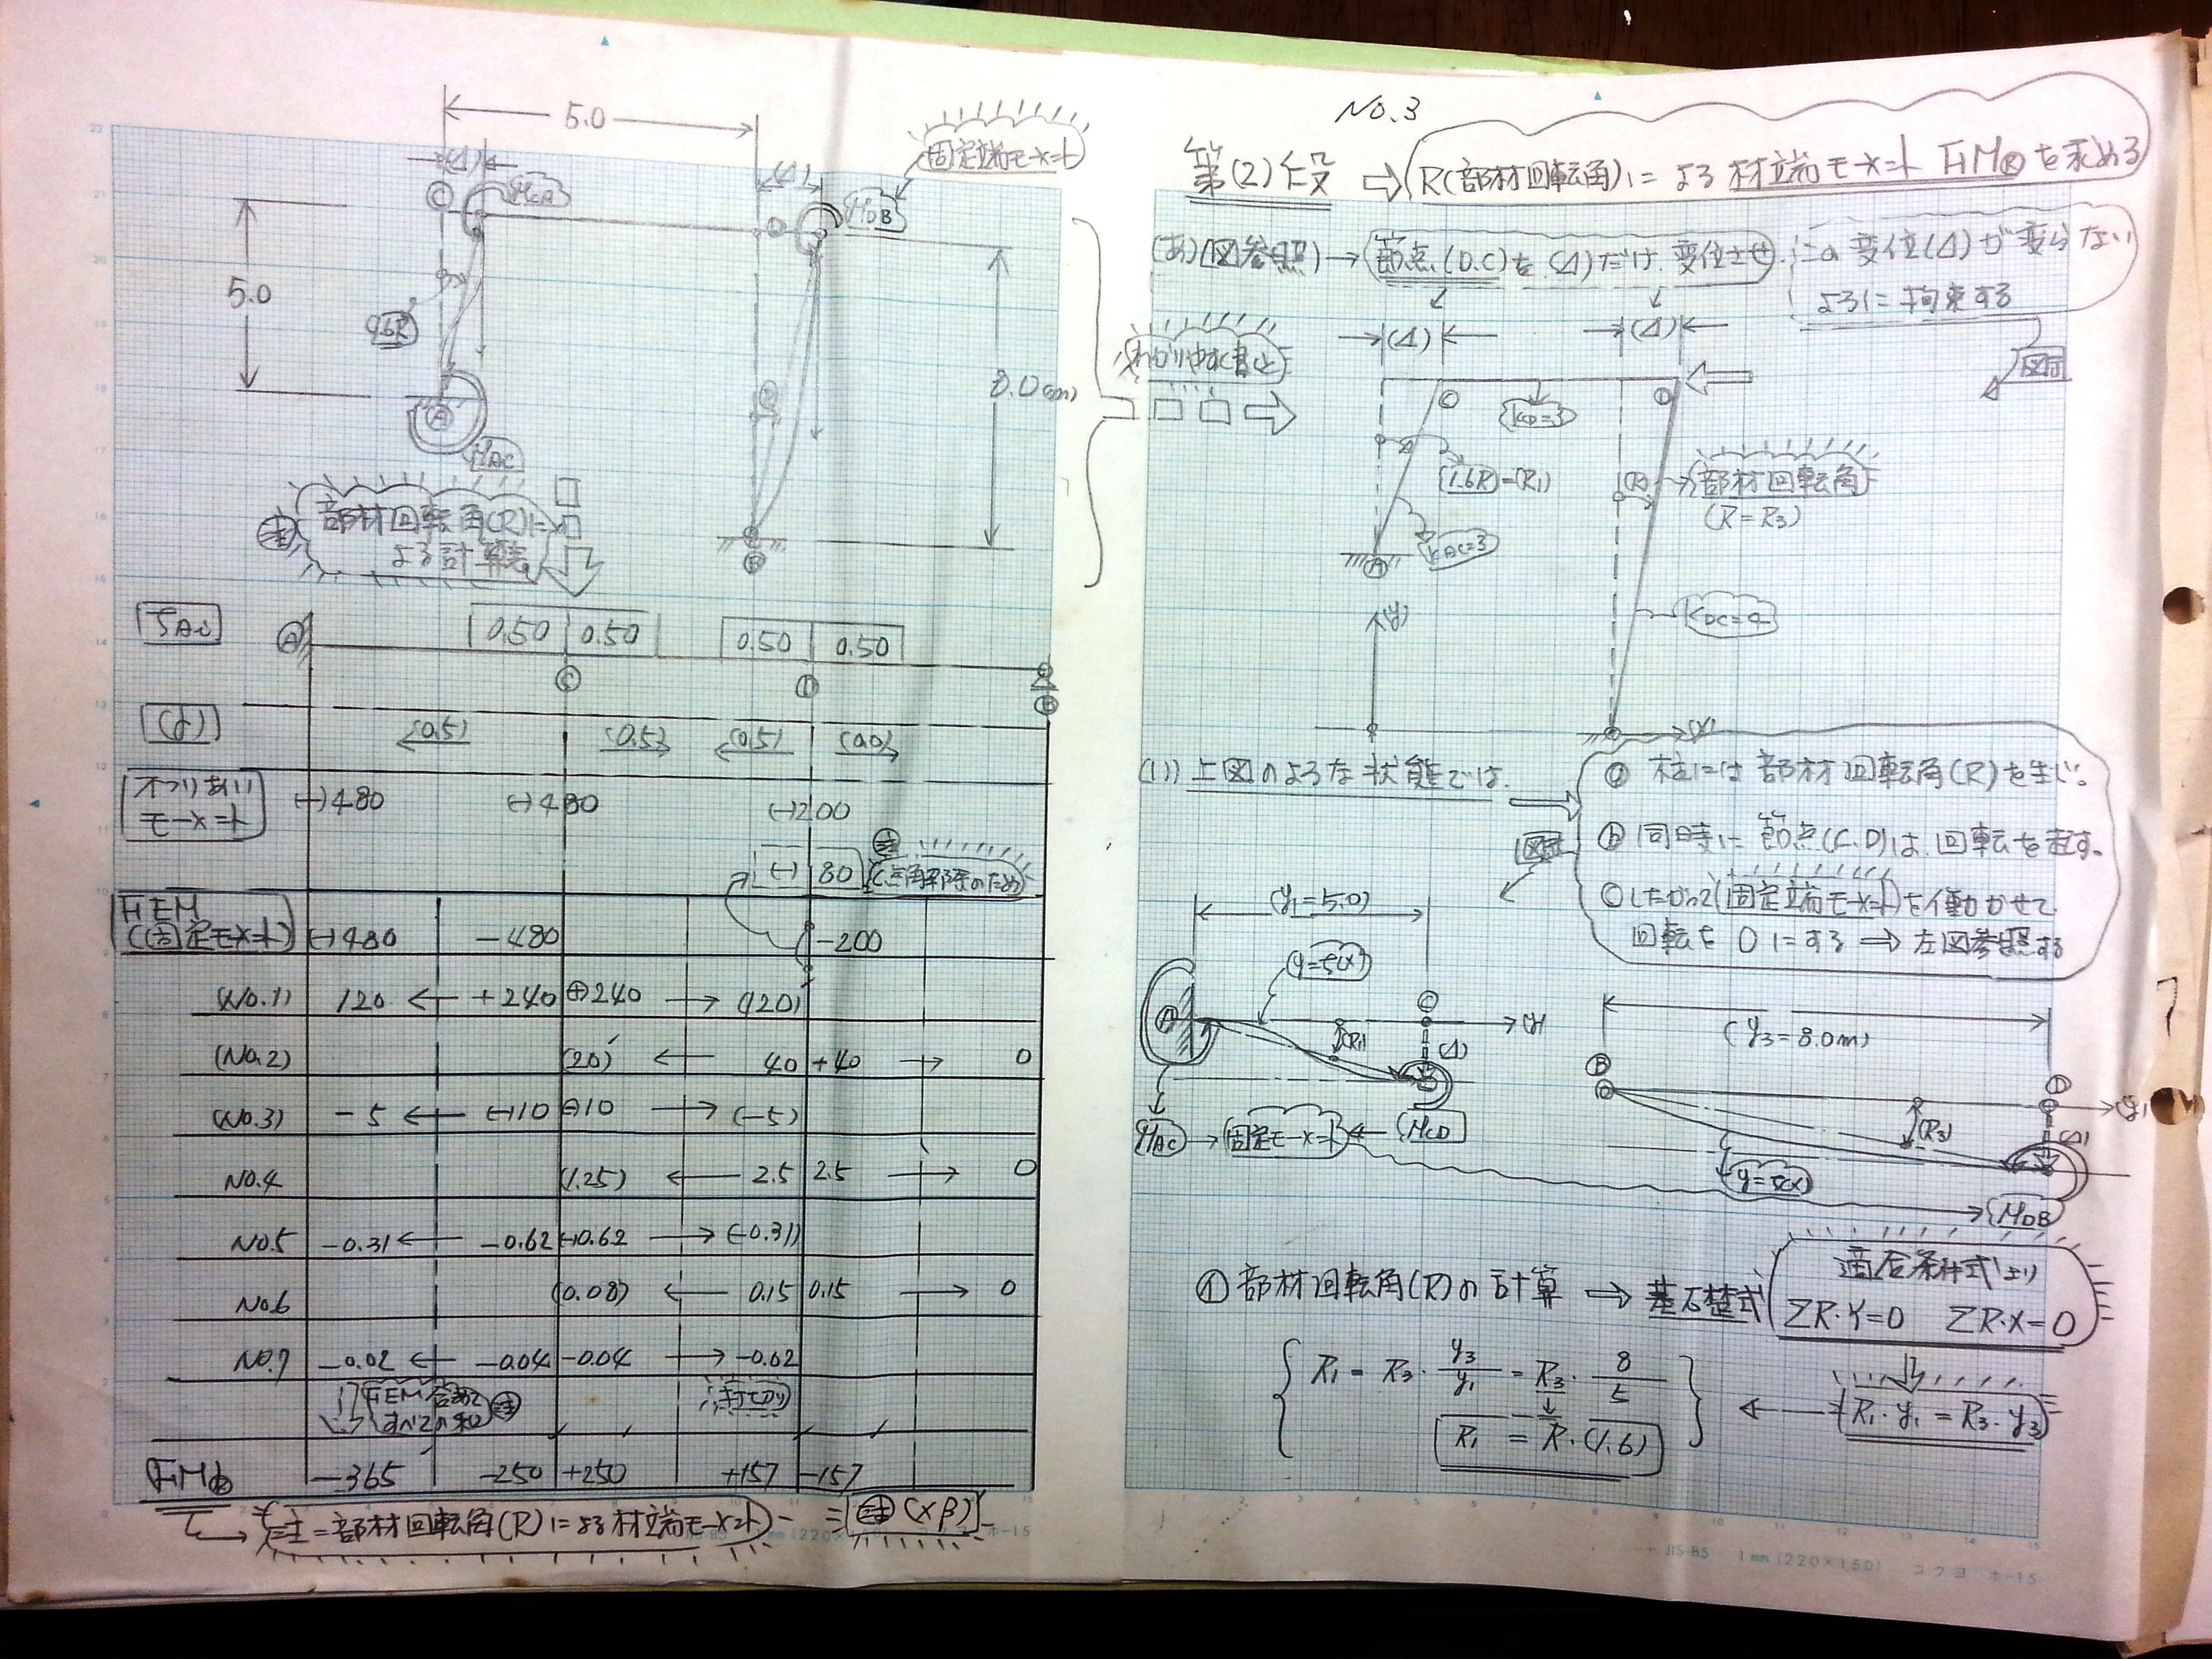 5.0
(Δ)
(Δ)
固定端モーメント
C
M_CA
D
M_DB
5.0
1.6R
8.0(m)
A
M_AC
B
注
部材回転角(R)に
よる計算表
A
0.50 0.50 0.50 0.50
C D B
(0.5) (0.5) (0.5) (0.0)
不つりあい
モーメント
(-)480 (-)480 (-)200
(-) 80
FEM
(固定モーメント) (-)480 -480 -200
(No.1) 120 ← +240 ⊕240 → (120)
(No.2) (20) ← 40 +40 → 0
(No.3) -5 ← (-)10 (-)10 → (-5)
No.4 (1.25) ← 2.5 2.5 → 0
No.5 -0.31 ← -0.62 -0.62 → (-0.31)
No.6 (0.08) ← 0.15 0.15 → 0
No.7 -0.02 ← -0.04 -0.04 → -0.02
FEM含めて
すべての和
注
-365 -250 +250 +157 -157
注=部材回転角(R)による材端モーメント = 注(xβ)
No.3
第(2)段 ⇒ R(部材回転角)による材端モーメント FMⓇを求める
(あ)(図参照)→ 節点(D.C)を(Δ)だけ変位させ、この変位(Δ)が変らない
ように拘束する
わかりやすく書くと
図示
(Δ) (Δ)
C D
K_CD=3
(1.6R)=(R1)
(R)→部材回転角
(R=R3)
K_AC=3
A
K_DC=4
(y)
(x)
(1)) 上図のような状態では、
ⓐ 柱には部材回転角(R)を生じ。
ⓑ 同時に節点(C.D)は、回転を起す。
ⓒ したがって(固定端モーメント)を働かせて
回転を0にする ⇒ 左図参照する
図示
(y1=5.0)
y=f(x)
A C
(R1) (Δ)
(y3=8.0m)
B D
(R3) (Δ)
M_AC → 固定モーメント ← M_CD
y=f(x)
M_DB
① 部材回転角(R)の計算 ⇒ 基石楚式
適合条件式より
ΣR·Y=0 ΣR·X=0
R1 = R3· y3/y1 = R3· 8/5
R1·y1 = R3·y3
R1 = R·(1.6)
7
JIS B5 1mm(220×150) コクヨ ホ-15